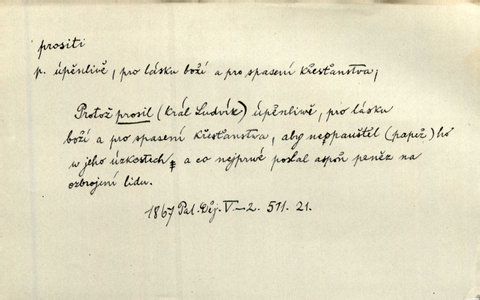 prositi
p. úpěnlivě, pro lásku boží a pro spasení křesťanstva;
Protož prosil (král Ludvík) úpěnliwě, pro lásku
boží a pro spasení křesťanstva, aby neopauštěl (papež) ho
w jeho úzkostech, a co nejprwé poslal aspoň peněz na
ozbrojení lidu.
1867 Pal. Děj. V–2. 511. 21.